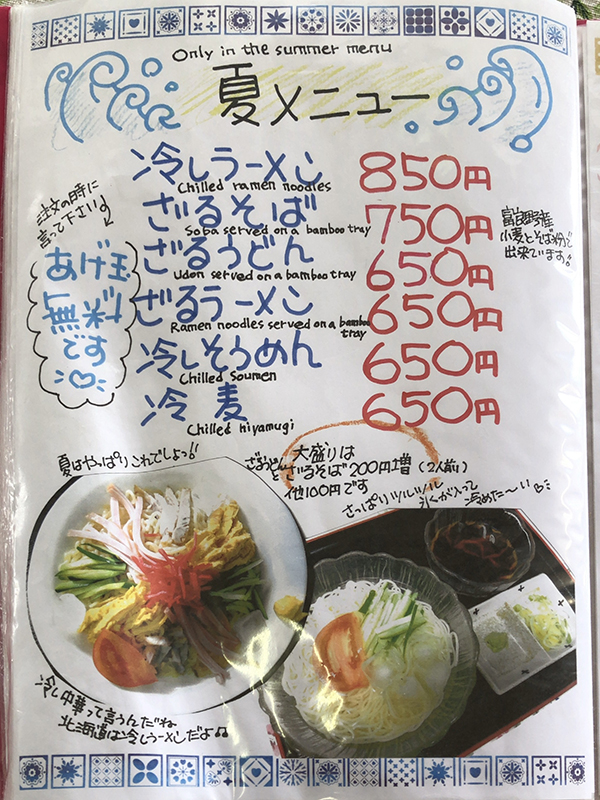 Only in the summer menu
夏メニュー
注文の時に
言って下さい♪
あげ玉
無料
です
冷しラーメン 850円
Chilled ramen noodles
ざるそば 750円
Soba served on a bamboo tray
富良野産
小麦とそば粉で
出来ています!
ざるうどん 650円
Udon served on a bamboo tray
ざるラーメン 650円
Ramen noodles served on a bamboo
tray
冷しそうめん 650円
Chilled Soumen
冷麦 650円
Chilled hiyamugi
夏はやっぱりこれでしょっ!!
大盛りは
ざるうどんとざるそば200円増(2人前!)
他100円です
さっぱりツルツル
氷が入って
冷めた〜い
冷し中華って言うんだね
北海道は冷しラーメンだよ♫